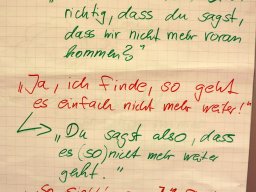 richtig, dass du sagst,
dass wir nicht mehr voran
kommen?"
"Ja, ich finde, so geht
es einfach nicht mehr weiter!"
"Du sagst also, dass
es (so) nicht mehr weiter
geht."